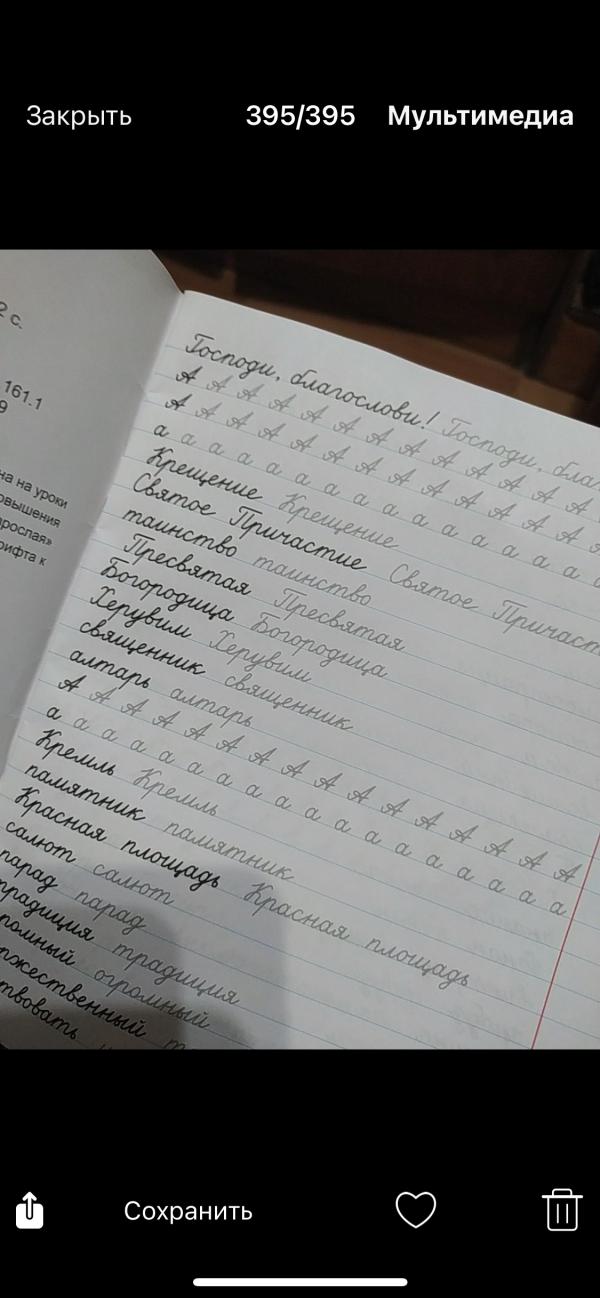 Закрыть 395/395 Мультимедиа
2 с.
161.1
9
на на уроки
овышения
рослая»
рифта к
Господи, благослови! Господи, бла
А А А А А А А А А А А А А А
А А А А А А А А А А А А А А
а а а а а а а а а а а а а а а
Крещение Крещение
Святое Причастие Святое Причаст
таинство таинство
Пресвятая Пресвятая
Богородица Богородица
Херувим Херувим
священник священник
алтарь алтарь
А А А А А А А А А А А А А А А А
а а а а а а а а а а а а а а а а а а
Кремль Кремль
памятник памятник
Красная площадь Красная площадь
салют салют
парад парад
традиция традиция
ромный огромный
ржественный т
твовать
Сохранить